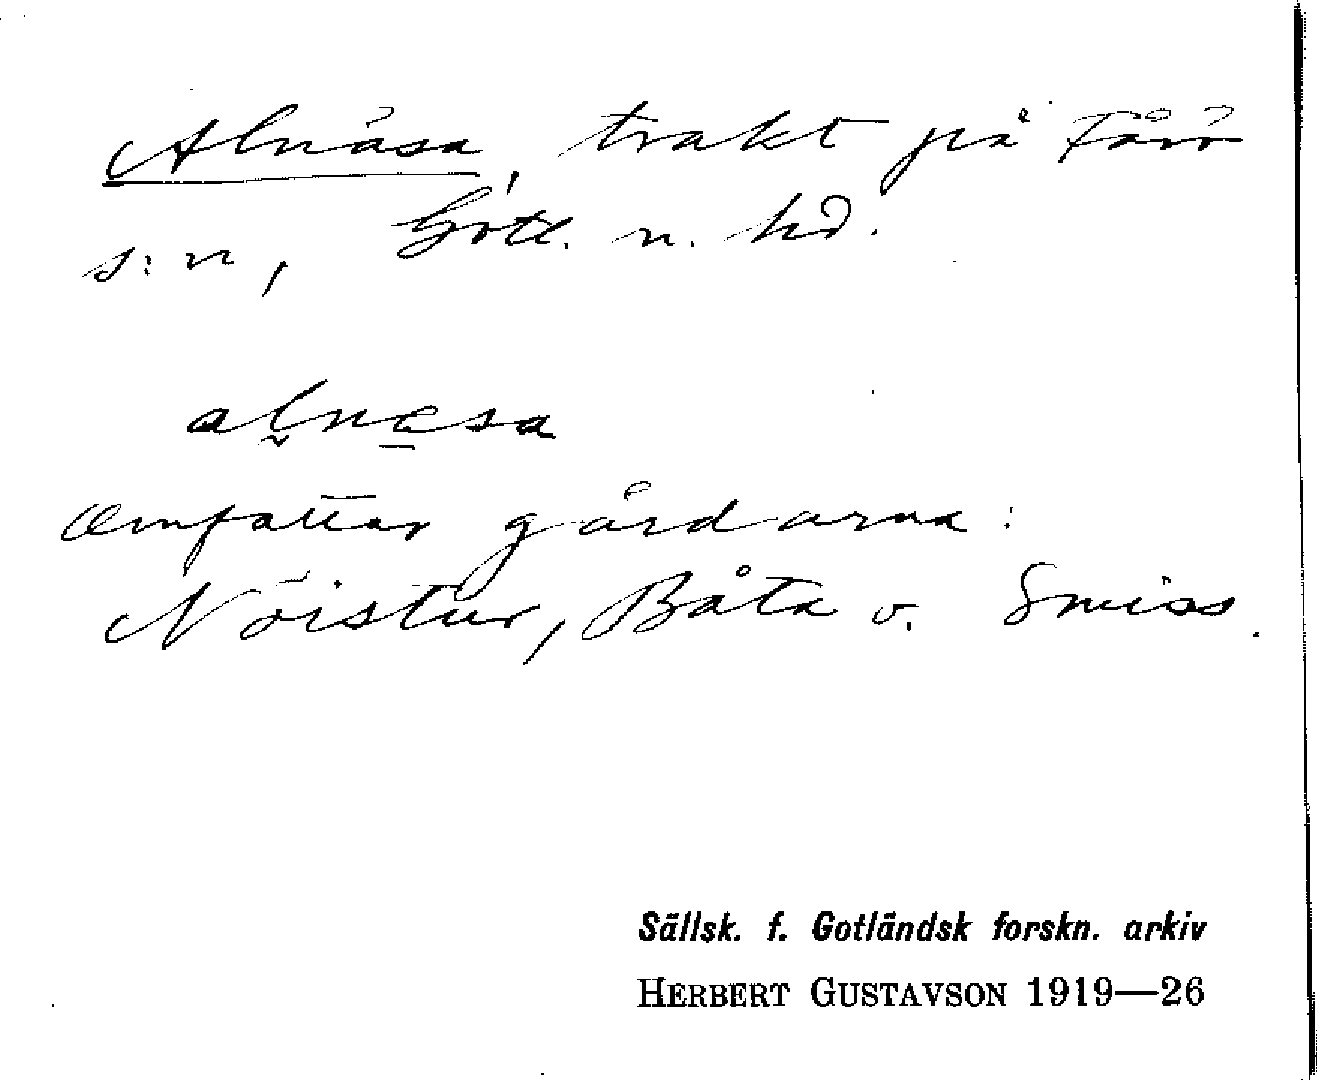 Alnäsa, trakt på Fårö
s:n, Gotl. n. hd.
alnesa
Omfattar gårdarna:
Nöistur, Båta o. Smiss.
Sällsk. f. Gotländsk forskn. arkiv
HERBERT GUSTAVSON 1919—26